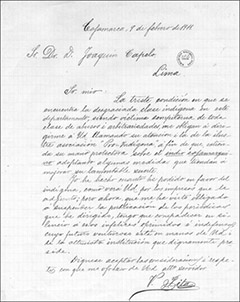 Cajamarca, 9 de febrero de 1911
Sr. Dr. D. Joaquin Capelo
Lima
Sr. mio:
La triste condición en que se
encuentra la desgraciada clase indígena en este
departamento, siendo víctima completamente de toda
clase de abusos y arbitrariedades, me obliga a diri-
girme a Ud. llamando su atención y la de la ilustre
asociación "Pro-Indígena", a fin de que, estando
su mano protectora sobre el indio cajamarquino
adoptando algunas medidas que tiendan a
mejorar su lamentable suerte.
Yo he hecho cuanto he podido en favor del
indígena, como verá Ud. por los impresos que le
adjunto; pero ahora que me he visto obligado
a suspender la publicación de los periódicos
que he dirigido, tengo que
cuyo futuro en manos de Ud. i
de la altruista institución que dignamente pre-
side.
Dígnese aceptar las consideraciones i respe-
tos con que me ofrezco de Ud. atto. servidor